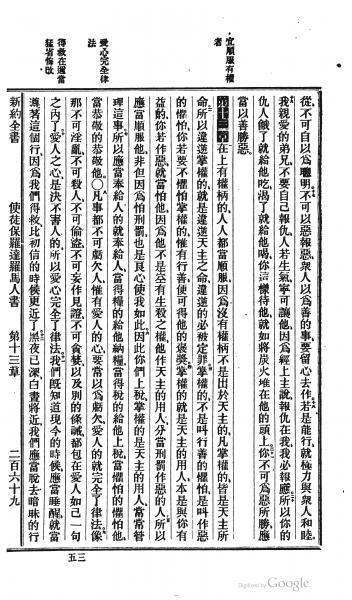 從不可自以爲聰明不可以惡報惡衆人以爲善的事要留心去作若是能行就極力與衆人和睦
我親愛的弟兄不要自己報仇人若生氣寧可讓他因爲經上主說報仇在我我必報應所以你的
仇人餓了就給他吃渴了就給他喝你這樣待他就如將炭火堆在他的頭上你不可爲惡所勝應
當以善勝惡
第十三章在上有權柄的人人都當順服因爲沒有權柄不是出於天主的凡掌權的皆是天主所
命所以違逆掌權的就是違逆天主之命違逆的必被定罪掌權的不是叫行善的懼怕是叫作惡
的懼怕你若要不懼怕掌權的惟有行善便可得他的褒獎掌權的就是天主的用人本是與你有
益的你若作惡就當怕他因爲他不是空有生殺之權他作天主的用人分當刑罰作惡的人所以
應當順服他非但因爲怕刑罰也是良心使我如此因此你們上稅掌權的是天主的用人常常管
理這事所以應當奉給人的就奉給人當得糧的給他納糧當得稅的給他上稅當懼怕的懼怕他
當恭敬的恭敬他○凡事都不可虧欠人惟有愛人的心要當以爲虧欠愛人的就完全了律法像
那不可淫亂不可殺人不可偷盜不可妄作見證不可貪婪以及別的條誡都包在愛人如己一句
之內了愛人之心是決不害人的所以愛心完全了律法我們旣知道現今的時候應當睡醒就當
遵著這個行因爲我們得救比初信的時候更近了黑夜已深白晝將近我們應當脫去暗昧的行
宜順服有權者
愛心完全律法
得救在邇當猛省悔改
新約全書 使徒保羅達羅馬人書 第十三章 二百六十九
五三
Digitized by Google